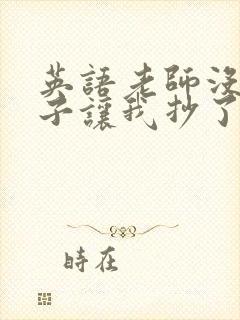 英語老師沒
子讓我抄了
時在